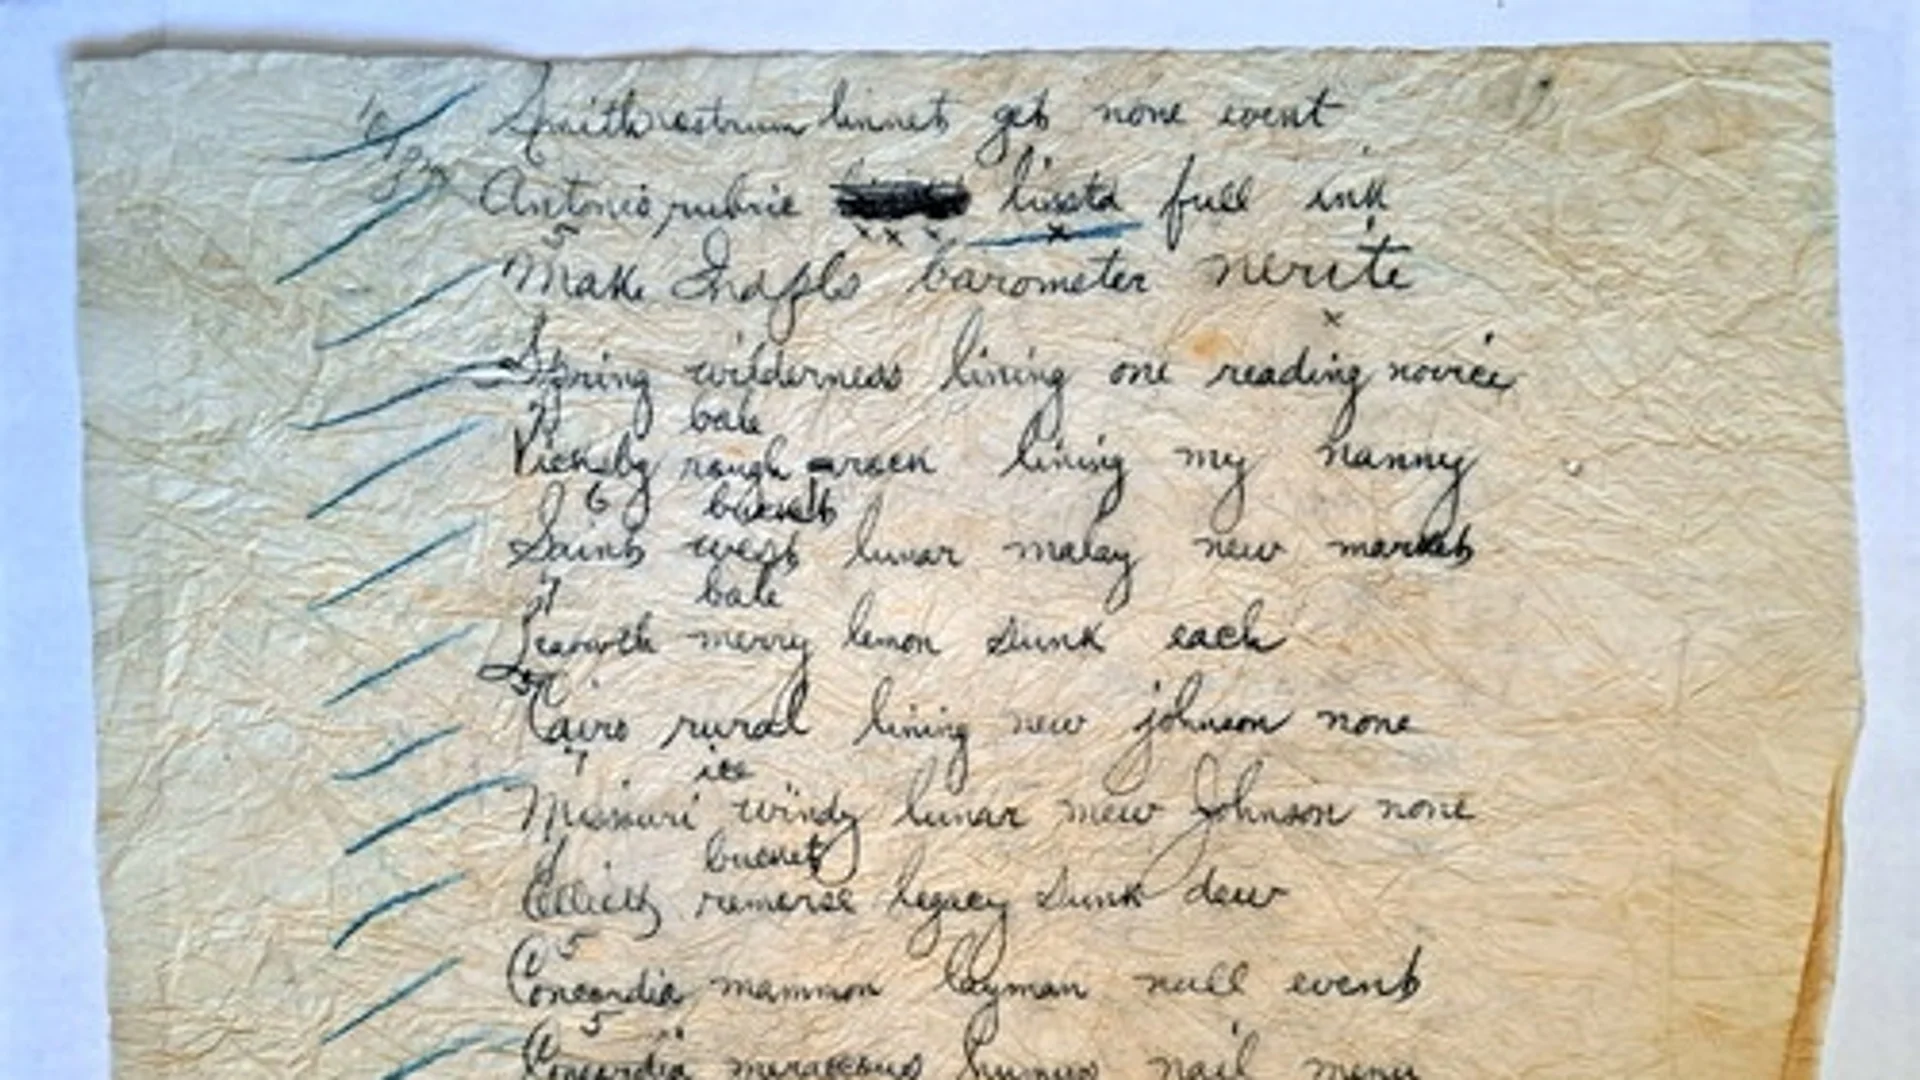 Smith nostrum linnet get none event
Antonio rubric lissta full ink
Make Indpls barometer nerite
Spring wilderness lining one reading novice
bale
Vicksbg rough rack lining my nanny
6 bucket
Saints west lunar malay new market
bale
Leavwth merry lemon sunk each
Cairo rural lining new johnson none
ice
Missouri windy lunar mew Johnson none
bucket
Elliott removal legacy sunk dew
5
Concordia mammon layman null event
5
Concordia humus nail menu